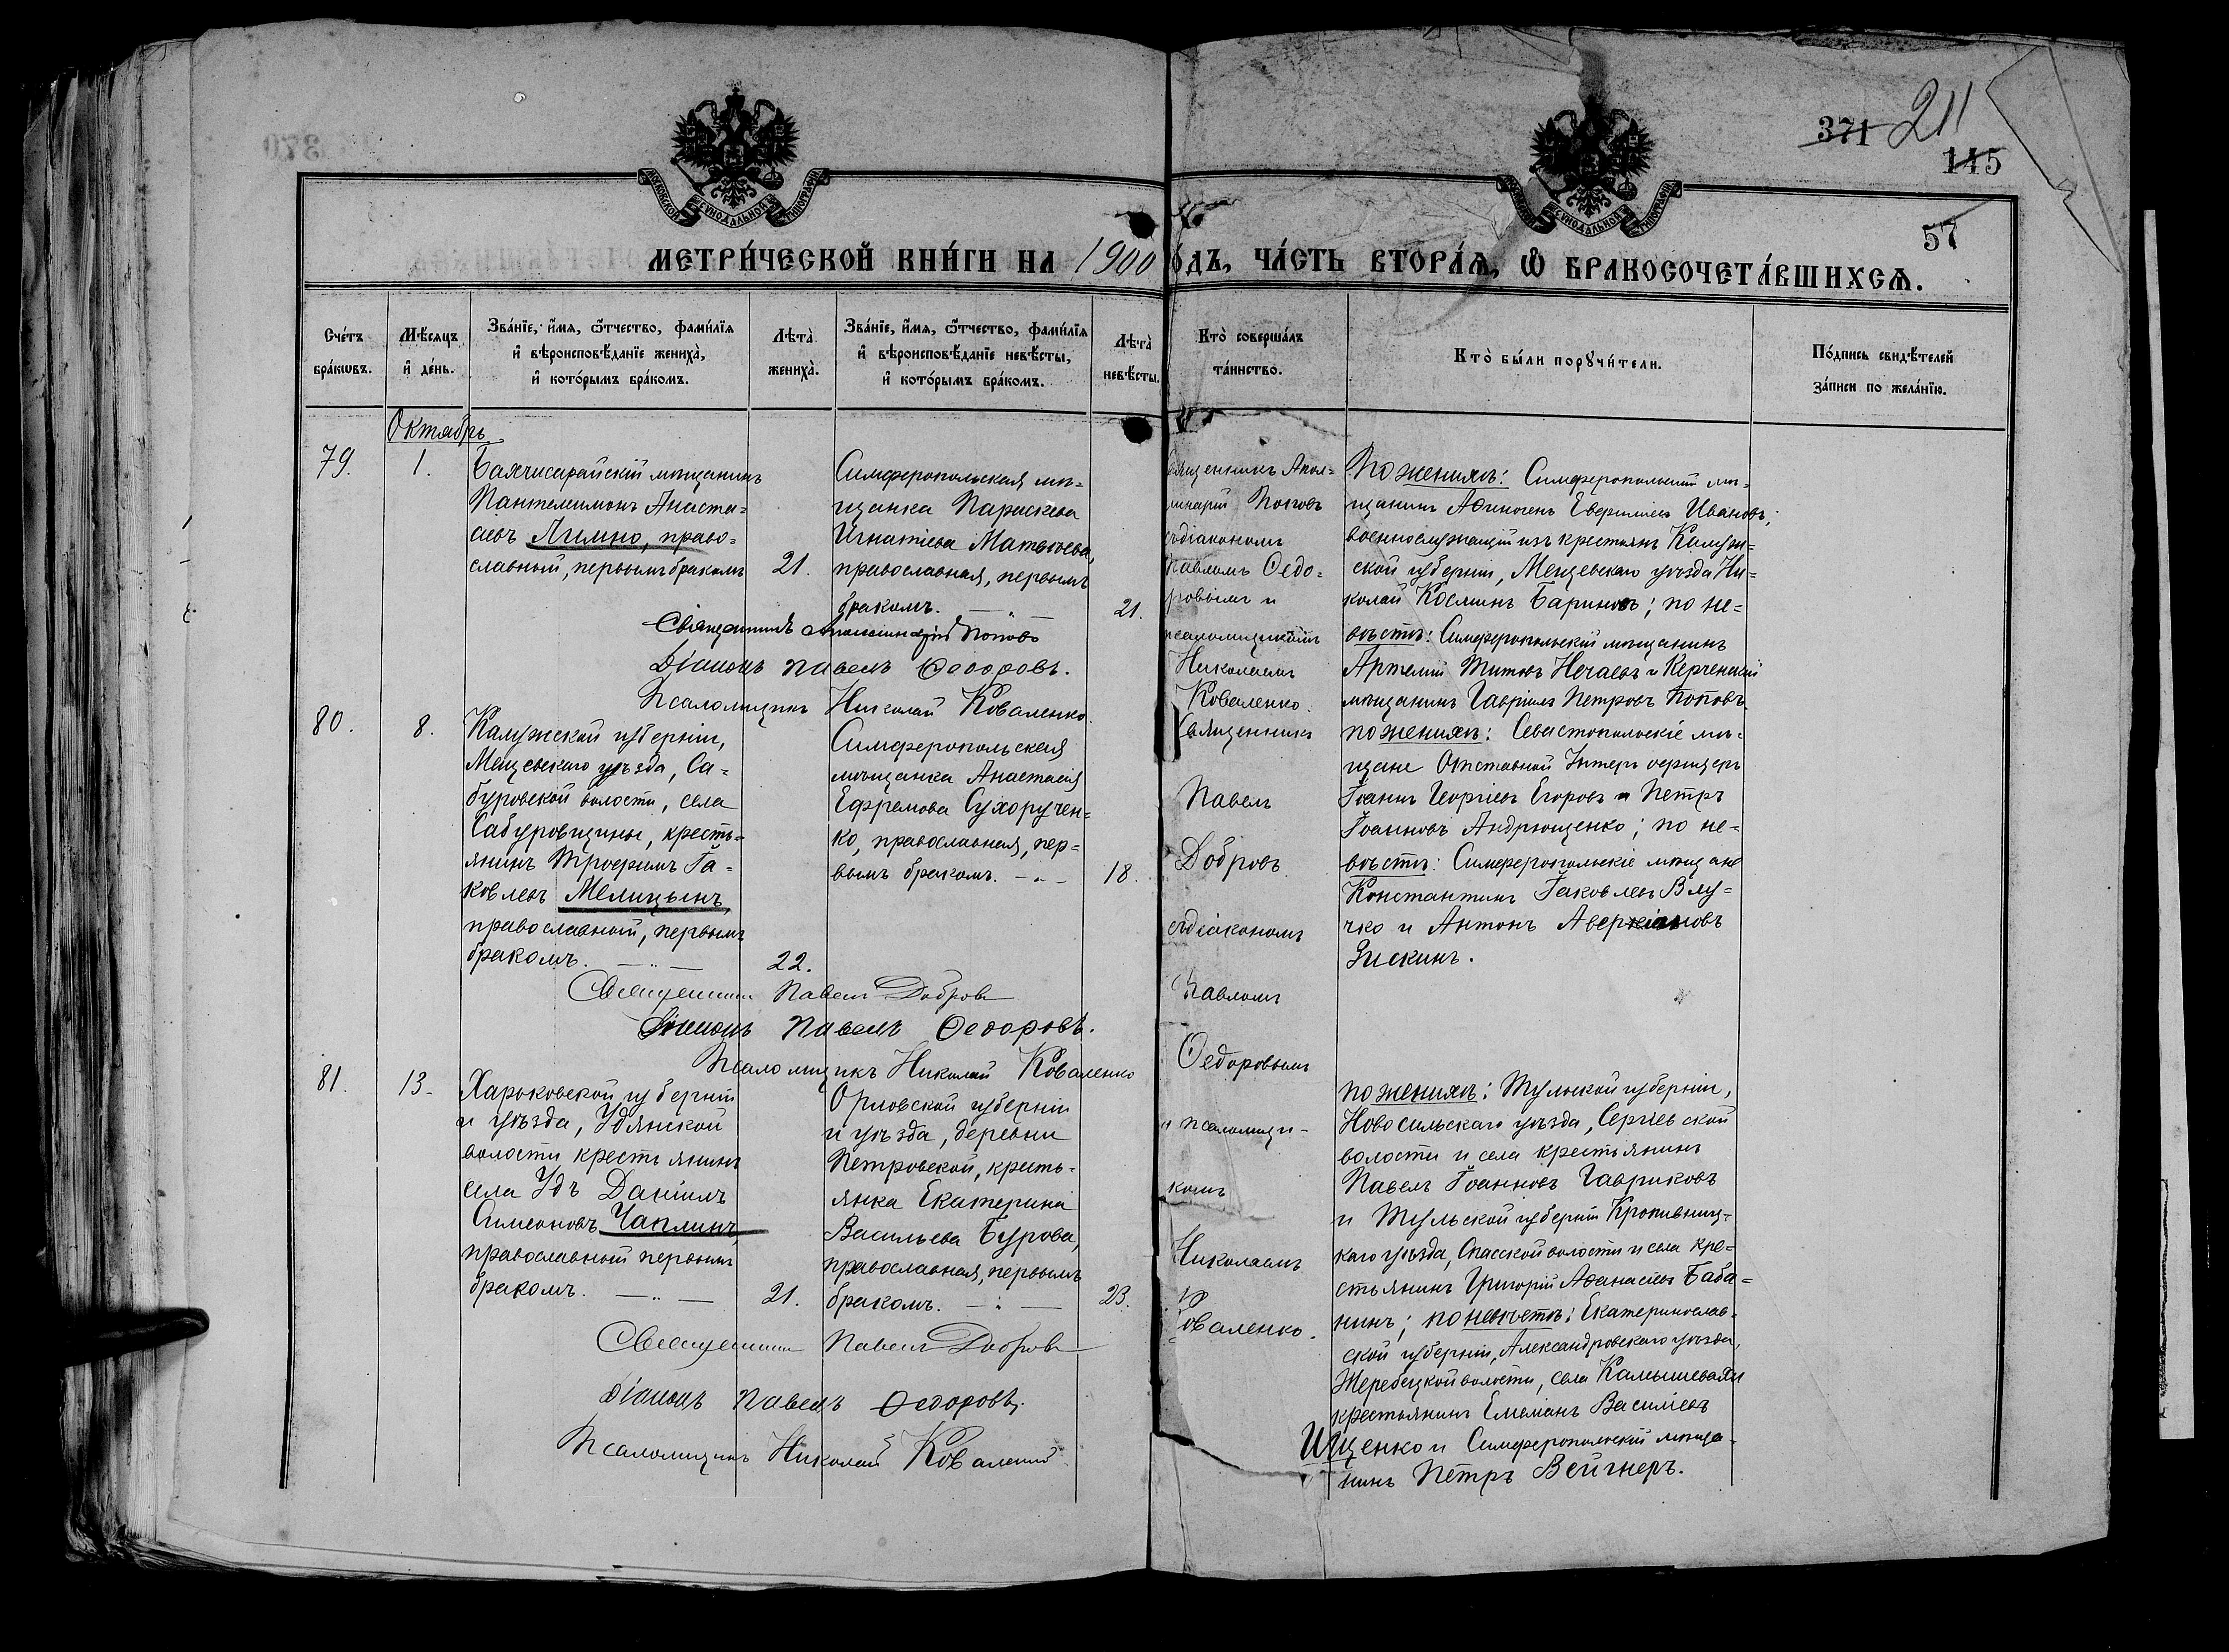 371 211
145
57
МОСКОВСКОЙ СѴНОДАЛЬНОЙ ТИПОГРАФІИ
МОСКОВСКОЙ СѴНОДАЛЬНОЙ ТИПОГРАФІИ
МЕТРИ́ЧЕСКОЙ КНИ́ГИ НА 1900 ѺДЪ, ЧА́СТЬ ВТОРА́Ѧ, Ѡ БРАКОСОЧЕТА́ВШИХСѦ.
Сче́тъ
бра́кѡвъ.
Мѣ́сяцъ
и҆ де́нь.
Зва́нїе, и҆́мя, ѻ҆́тчество, фами́лїя
и҆ вѣроисповѣ́данїе жениха̀,
и҆ кото́рымъ бра́комъ.
Лѣта̀
жениха̀.
Зва́нїе, и҆́мя, ѻ҆́тчество, фами́лїя
и҆ вѣроисповѣ́данїе невѣ́сты,
и҆ кото́рымъ бра́комъ.
Лѣта̀
невѣ́сты.
Кто̀ соверша́лъ
та́инство.
Кто̀ бы́ли порꙋчи́тели.
По́дпись свидѣ́телей
за́писи по жела́нїю.
Октябрь
79.
1.
Бахчисарайскій мѣщанинъ
Пантелеимонъ Анаста-
сіевъ Лимно, право-
славный, первымъ бракомъ
21.
Симферопольская мѣ-
щанка Параскева
Игнатіева Матвѣева,
православная, первымъ
бракомъ.
21.
Священникъ Апол-
линарій Поповъ
съ діакономъ
Павломъ Ѳедо-
ровымъ и
псаломщикомъ
Николаемъ
Коваленко.
По женихѣ: Симферопольскій мѣ-
щанинъ Аѳиногенъ Іванов;
военнослужащій изъ крестьянъ Калуж-
ской губерніи, Мещевскаго уѣзда Ни-
колай Косминъ Бариновъ; по не-
вѣстѣ: Симферопольскій мѣщанинъ
Артемій Титовъ Нечаевъ и Керченскій
мѣщанинъ Гавріилъ Петровъ Поповъ.
Священникъ Аполлинарій Поповъ
Діаконъ Павелъ Ѳедоровъ.
Псаломщикъ Николай Коваленко.
80.
8.
Калужской губерніи,
Мещевскаго уѣзда, Са-
буровской волости, села
Сабуровщины, кресть-
янинъ Трофимъ Іа-
ковлевъ Мелицынъ,
православный, первымъ
бракомъ.
22.
Симферопольская
мѣщанка Анастасія
Ефремова Сухоручен-
ко, православная, пер-
вымъ бракомъ.
18.
Священникъ
Павелъ
Добровъ
съ діакономъ
Павломъ
Ѳедоровымъ
и псаломщи-
комъ
Николаемъ
Коваленко.
по женихѣ: Севастопольскіе мѣ-
щане Отставной Унтеръ офицеръ
Іоаннъ Георгіевъ Егоровъ и Петръ
Іоанновъ Андрющенко; по не-
вѣстѣ: Симферопольскіе мѣщане
Константинъ Іаковлевъ Влу-
чко и Антонъ Аверкіановъ
Зискинъ.
Священникъ Павелъ Добровъ
Діаконъ Павелъ Ѳедоровъ.
Псаломщикъ Николай Коваленко
81.
13.
Харьковской губерніи
и уѣзда, Удянской
волости крестьянинъ
села Удъ Даніилъ
Симеоновъ Чаплинъ,
православный первымъ
бракомъ.
21.
Орловской губерніи
и уѣзда, деревни
Петровской, кресть-
янка Екатерина
Васильева Бурова,
православная, первымъ
бракомъ.
23.
по женихѣ: Тульской губерніи,
Новосильскаго уѣзда, Сергіевской
волости и села крестьянинъ
Павелъ Іоанновъ Гавриковъ
и Тульской губерніи Кропивниц-
каго уѣзда, Спасской волости и села кре-
стьянинъ Григорій Аѳанасіевъ Баба-
нинъ; по невѣстѣ: Екатеринослав-
ской губерніи, Александровскаго уѣзда,
Жеребецкой волости, села Камышевахи
крестьянинъ Емеманъ Василіевъ
Ищенко и Симферопольскій мѣща-
нинъ Петръ Вейгнеръ.
Священникъ Павелъ Добровъ
Діаконъ Павелъ Ѳедоровъ.
Псаломщикъ Николай Коваленко